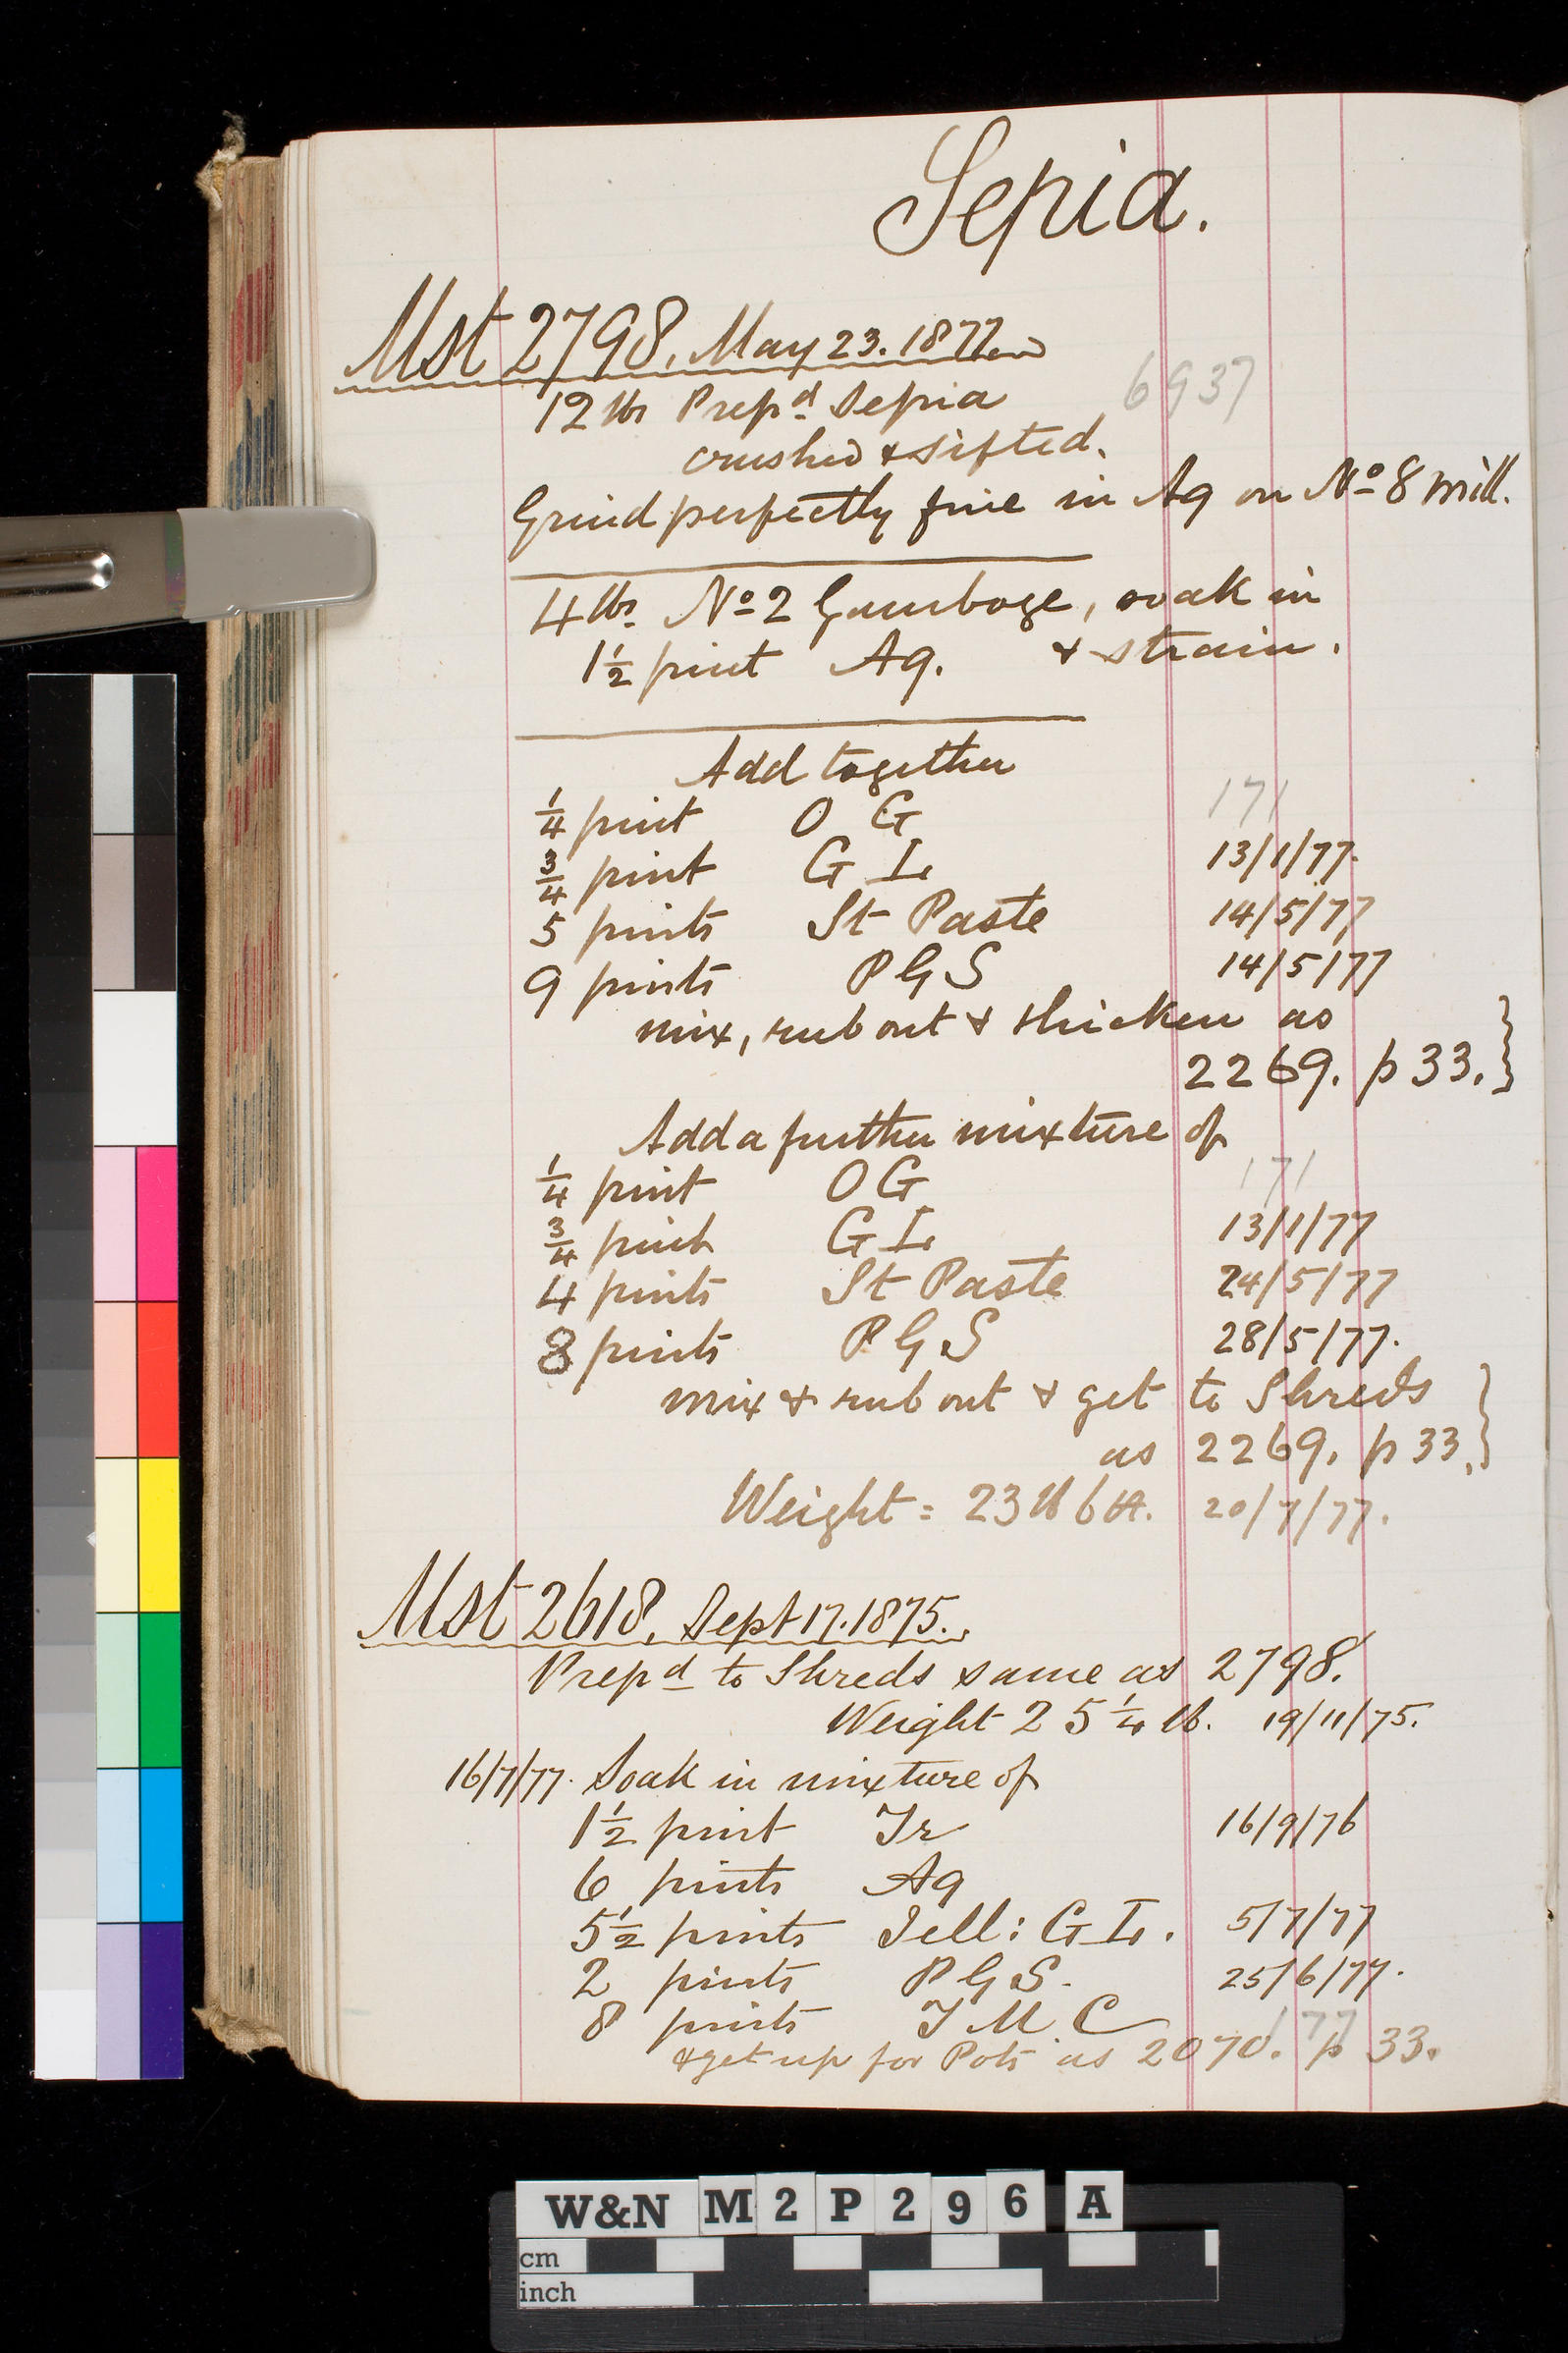 Sepia.
Mst 2798. May 23. 1877
12 lbs Prepd Sepia 6937
crushed & sifted.
Grind perfectly fine in Aq on No 8 mill.
4 lbs No 2 Gamboge, soak in
1½ pint Aq. & strain.
Add together
¼ pint O G 171
¾ pint G L 13/1/77.
5 pints St Paste 14/5/77
9 pints P G S 14/5/77
mix, rub out & thicken as
2269. p 33. }
Add a further mixture of
¼ pint O G 171
¾ pint G L 13/1/77
4 pints St Paste 24/5/77
8 pints P G S 28/5/77.
mix & rub out & get to Shreds
as 2269. p 33. }
Weight = 23 lb 6 20/7/77.
Mst 2618. Sept 17. 1875.
Prepd to Shreds same as 2798.
Weight 25¼ lb. 19/11/75.
16/7/77. Soak in mixture of
1½ pint 16/9/76
6 pints Aq
5½ pints Jell: G L. 5/7/77
2 pints P G S. 25/6/77.
8 pints M C 177
& get up for Pots as 2070. p 33.
W&N M 2 P 2 9 6 A
cm
inch